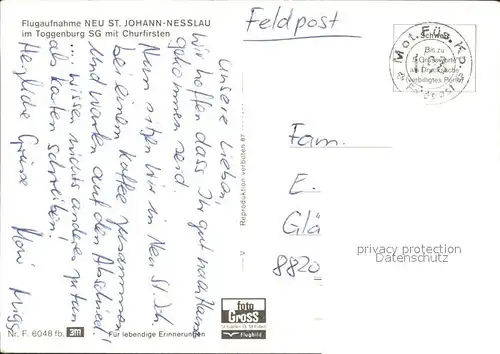 Flugaufnahme NEU ST. JOHANN-NESSLAU
im Toggenburg SG mit Churfirsten
Feldpost
Mot. Füs. Kp.
Feldpost
Schweiz
Bis zu
5 Grussworte
als Drucksache
(verbilligtes Porto)
Unsere Lieben,
Wir hoffen dass Ihr gut nach Hause
gekommen seid.
Nun sitzen wir in Neu St. Joh.
bei einem Kaffee zusammen
und warten auf den Abschied!
wissen nichts anderes zu tun
als Karten schreiben!
Herzliche Grüsse
Fam.
E.
Glä
8820
privacy protection
Datenschutz
Reproduktion verboten 87
V
Nr. F. 6048 fb.
3m
Für lebendige Erinnerungen
foto
Gross
St.Gallen
Flugbild